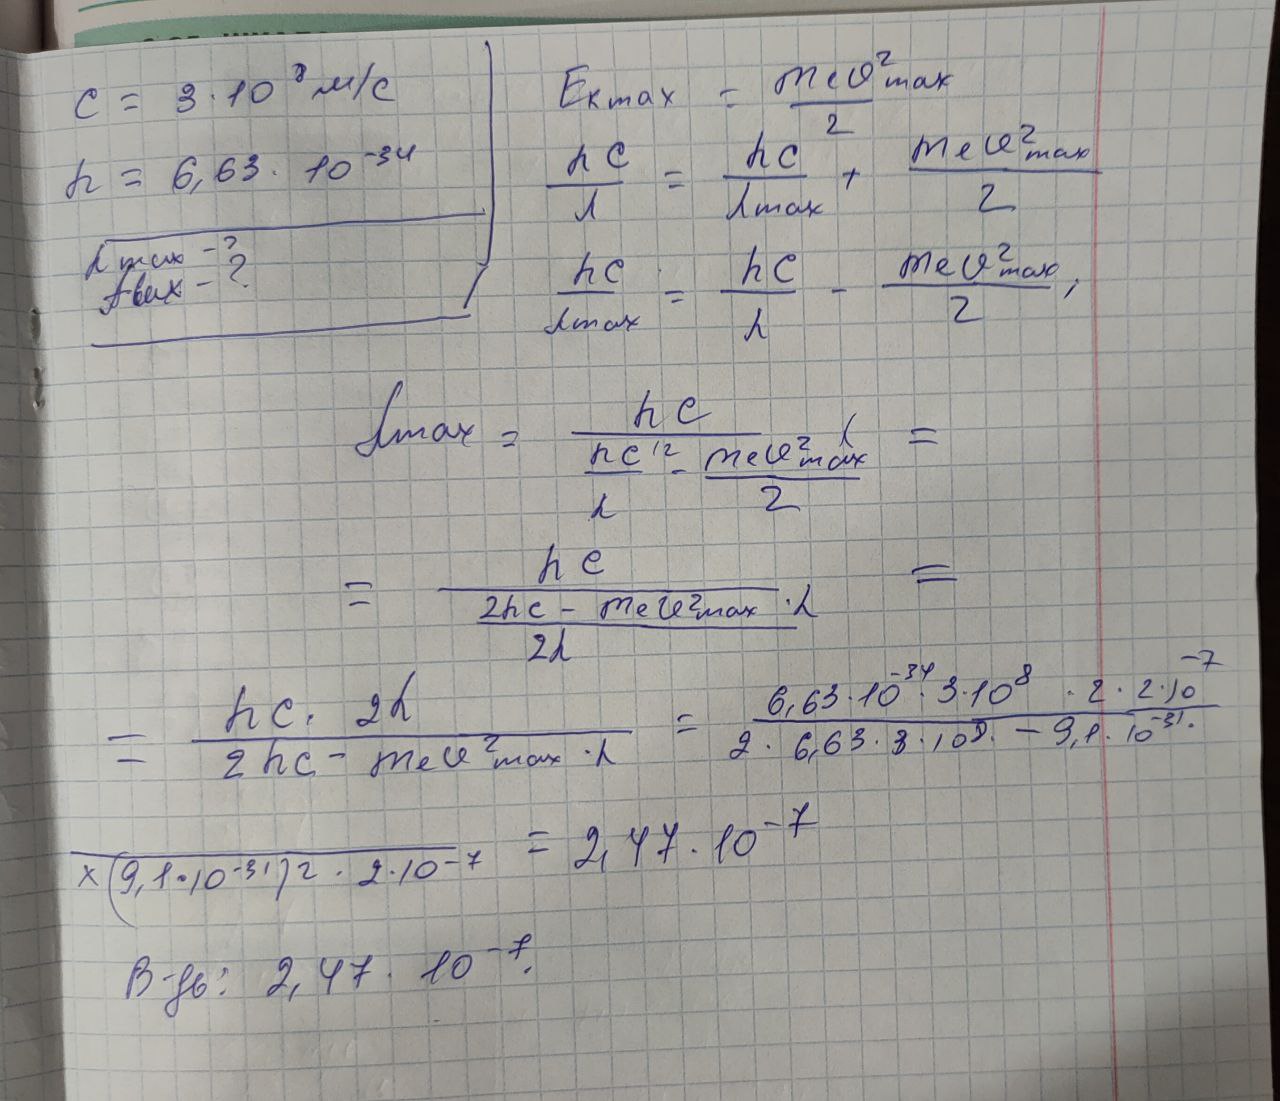 c = 3·10⁸ м/с
h = 6,63·10⁻³⁴
λmax - ?
Aвих - ?
Eк max = meυ²max / 2
hc/λ = hc/λmax + meυ²max/2
hc/λmax = hc/λ - meυ²max/2,
λmax = hc / (hc/λ - meυ²max/2) =
= hc / ((2hc - meυ²max·λ)/2λ) =
= hc·2λ / (2hc - meυ²max·λ) = 6,63·10⁻³⁴·3·10⁸·2·2·10⁻⁷ / 2·6,63·3·10⁸·-9,1·10⁻³¹·
×(9,1·10⁻³¹)2·2·10⁻⁷ = 2,47·10⁻⁷
В-дь: 2,47·10⁻⁷.